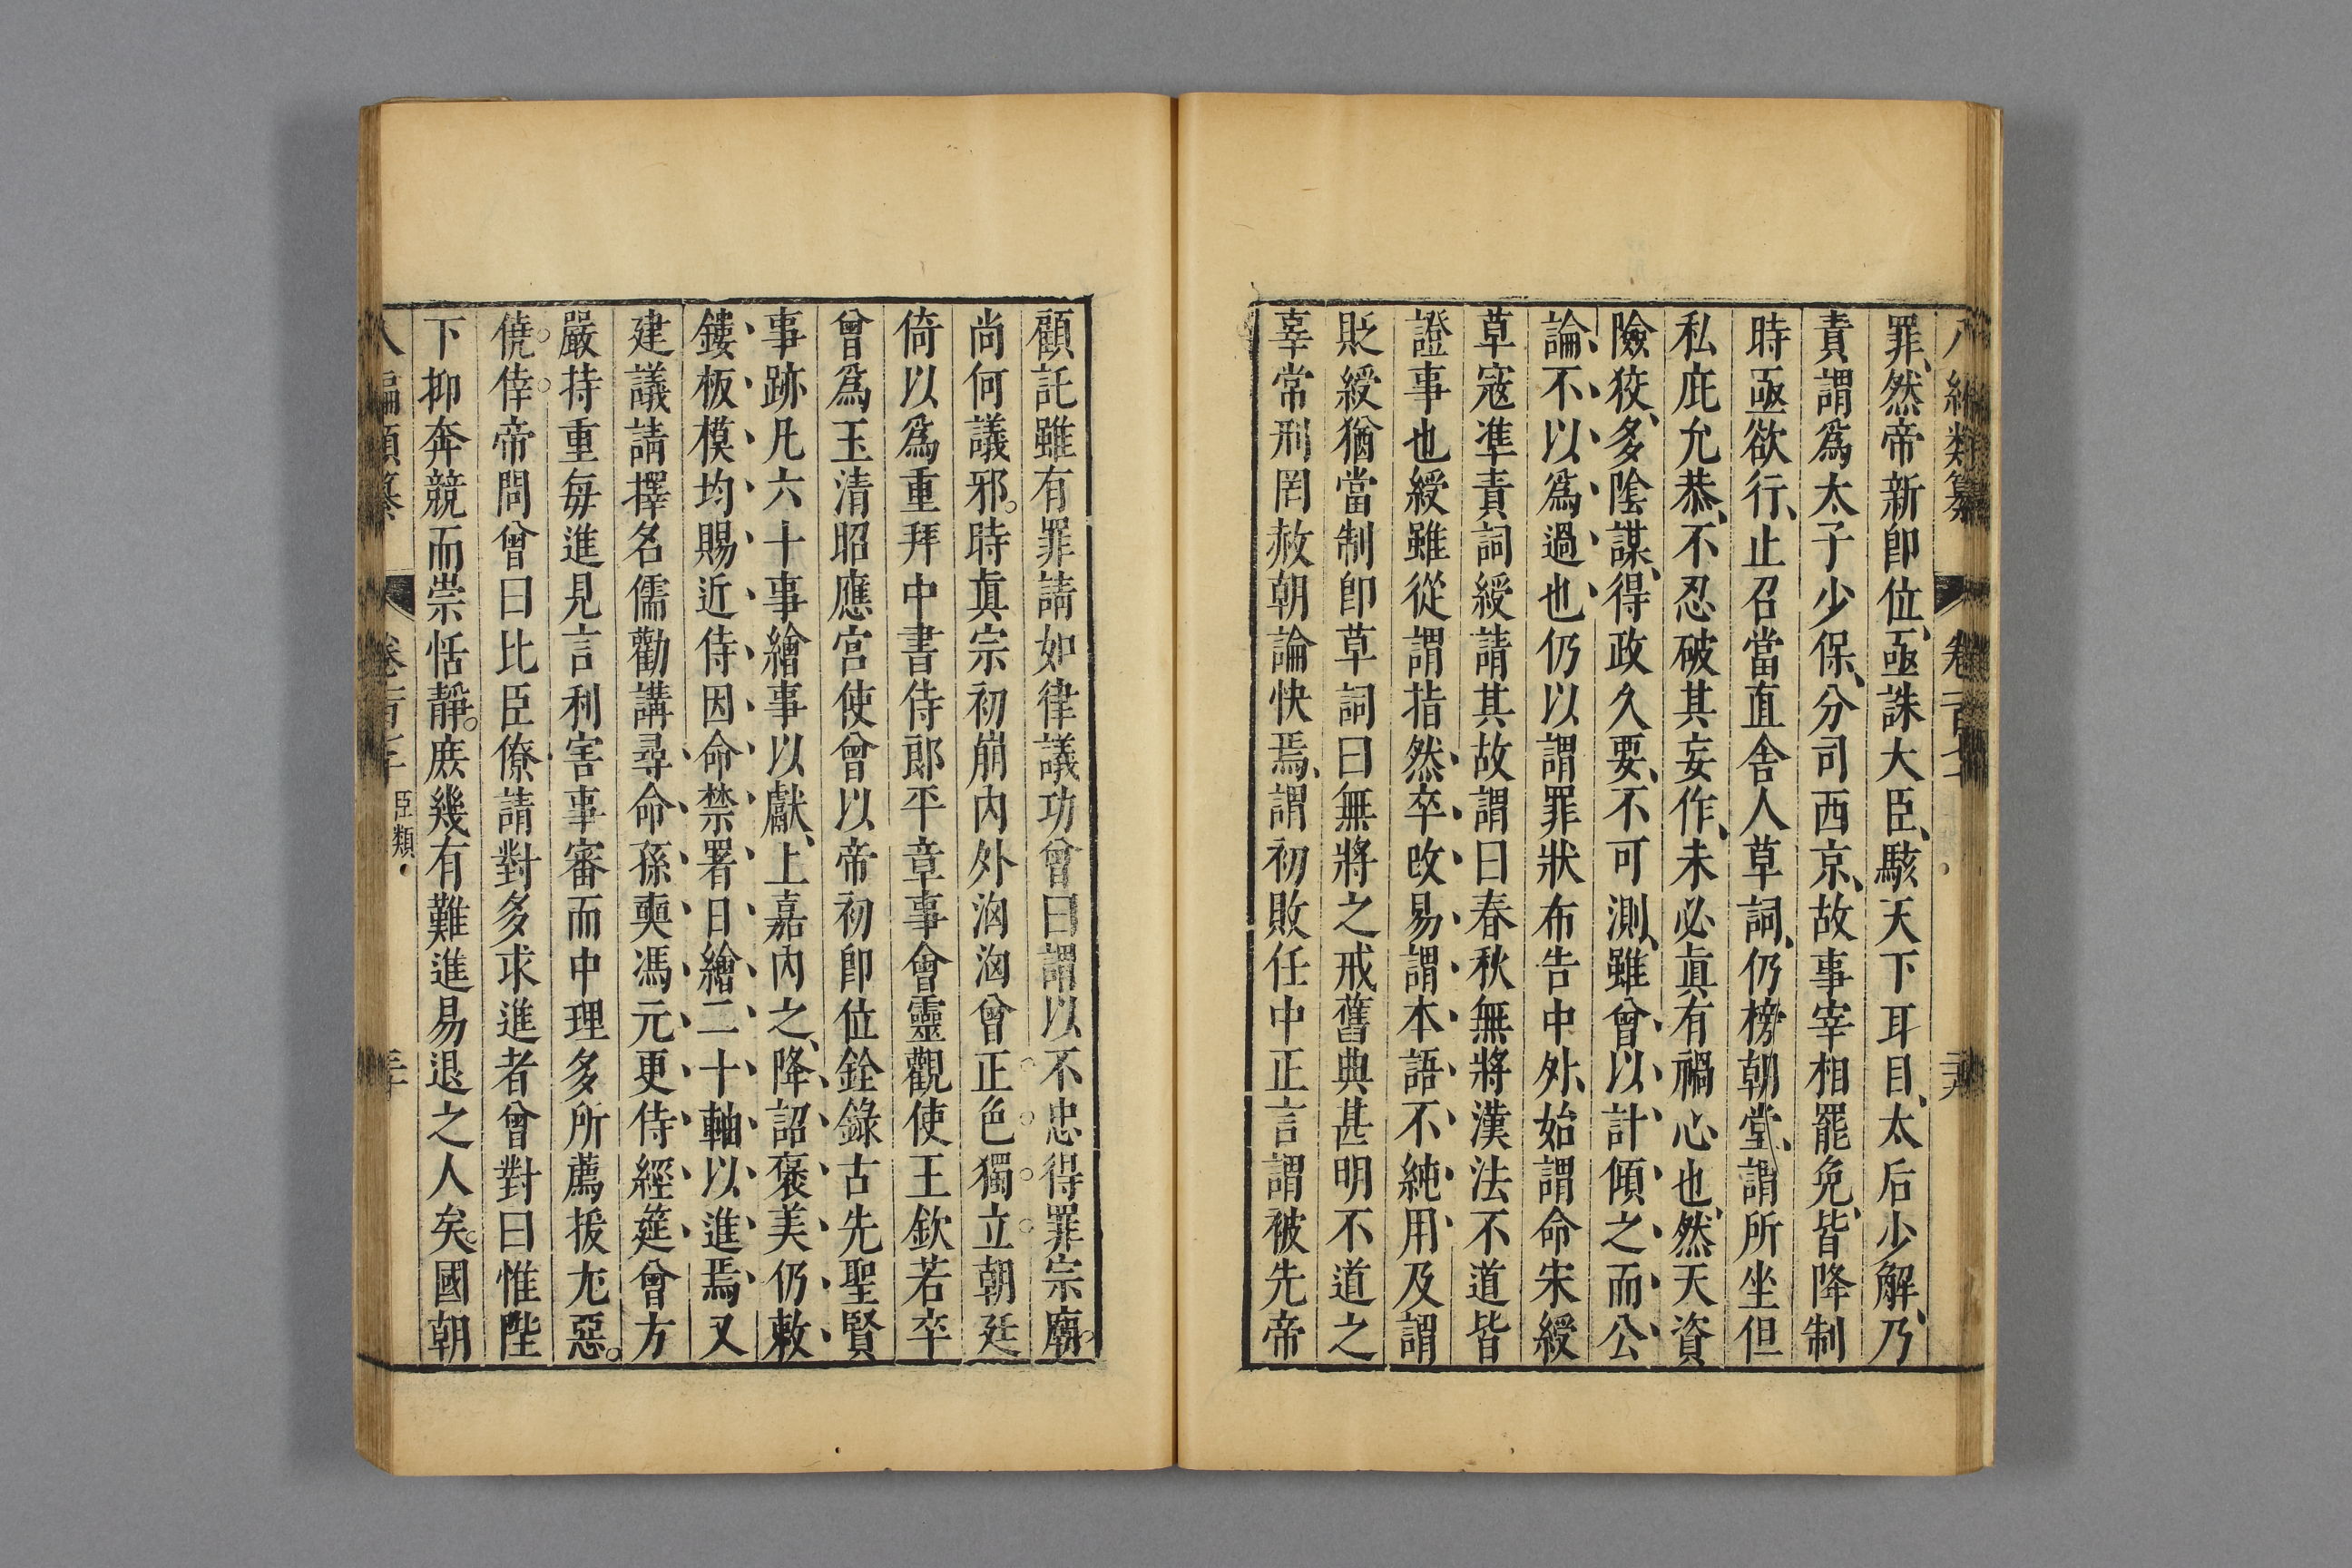 八編類纂 卷一百十
罪、然帝新卽位、亟誅大臣、駭天下耳目、太后少解、乃
責謂爲太子少保、分司西京、故事宰相罷免、皆降制
時亟欲行、止召當直舍人草詞、仍榜朝堂、謂所坐但
私庇允恭、不忍破其妄作、未必眞有禍心也、然天資
險狡、多陰謀、得政久要、不可測、雖曾以計傾之而公
論、不以爲過也仍以謂罪狀布告中外、始謂命宋綬
草寇準責詞綬請其故謂曰春秋無將漢法不道皆
證事也綬雖從謂指然卒改易謂本語不純用及謂
貶綬猶當制卽草詞曰無將之戒舊典甚明不道之
辜常刑罔赦朝論快焉、謂初敗任中正言謂被先帝
顧託雖有罪請如律議功曾曰謂以不忠得罪宗廟
尚何議邪。時眞宗初崩內外洶洶曾正色獨立朝廷
倚以爲重拜中書侍郎平章事會靈觀使王欽若卒
曾爲玉清昭應宮使曾以帝初卽位銓錄古先聖賢
事跡凡六十事繪事以獻、上嘉內之、降詔褒美仍敕
鏤板模均賜近侍因命禁署日繪二十軸以進焉又
建議請擇名儒勸講尋命孫奭馮元更侍經筵曾方
嚴持重每進見言利害事審而中理多所薦拔尤惡。
僥倖帝問曾曰比臣僚請對多求進者曾對曰惟陛
下抑奔競而崇恬靜。庶幾有難進易退之人矣。國朝
八編類纂 卷一百十 臣類